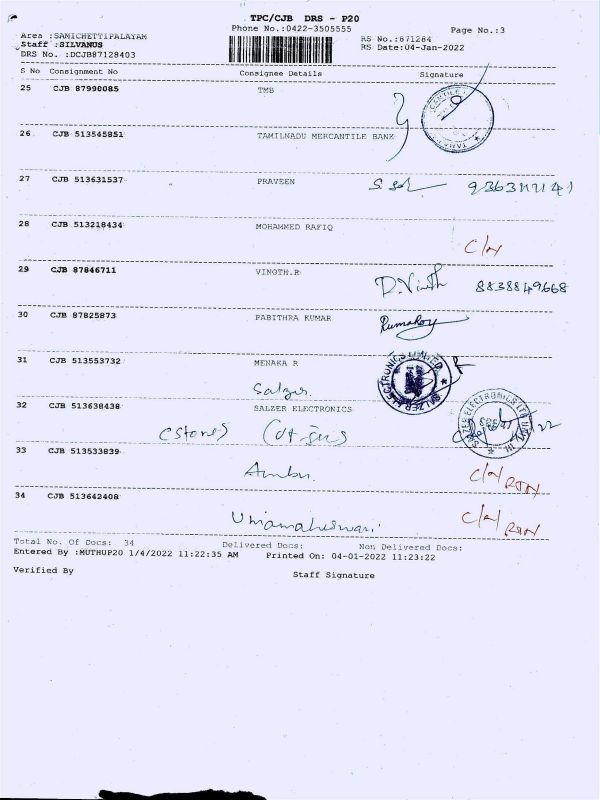 TPC/CJB DRS - P20
Phone No.:0422-3505555 Page No.:3
Area :SAMICHETTIPALAYAM RS No.:871284
Staff :SILVANUS RS Date:04-Jan-2022
DRS No. :DCJB87128403
S No Consignment No Consignee Details Signature
25 CJB 87990085 TMB
26 CJB 513545851 TAMILNADU MERCANTILE BANK
27 CJB 513631537 PRAVEEN
28 CJB 513218434 MOHAMMED RAFIQ
29 CJB 87846711 VINOTH.R
D.Vinoth 8838849668
30 CJB 87825873 PABITHRA KUMAR
31 CJB 513553732 MENAKA R
SALZER ELECTRONICS LIMITED
Salzer
32 CJB 513638438 SALZER ELECTRONICS
33 CJB 513533839
Ambu
34 CJB 513642408
Umamaheswari
Total No. Of Docs: 34 Delivered Docs: Non Delivered Docs:
Entered By :MUTHUP20 1/4/2022 11:22:35 AM Printed On: 04-01-2022 11:23:22
Verified By Staff Signature